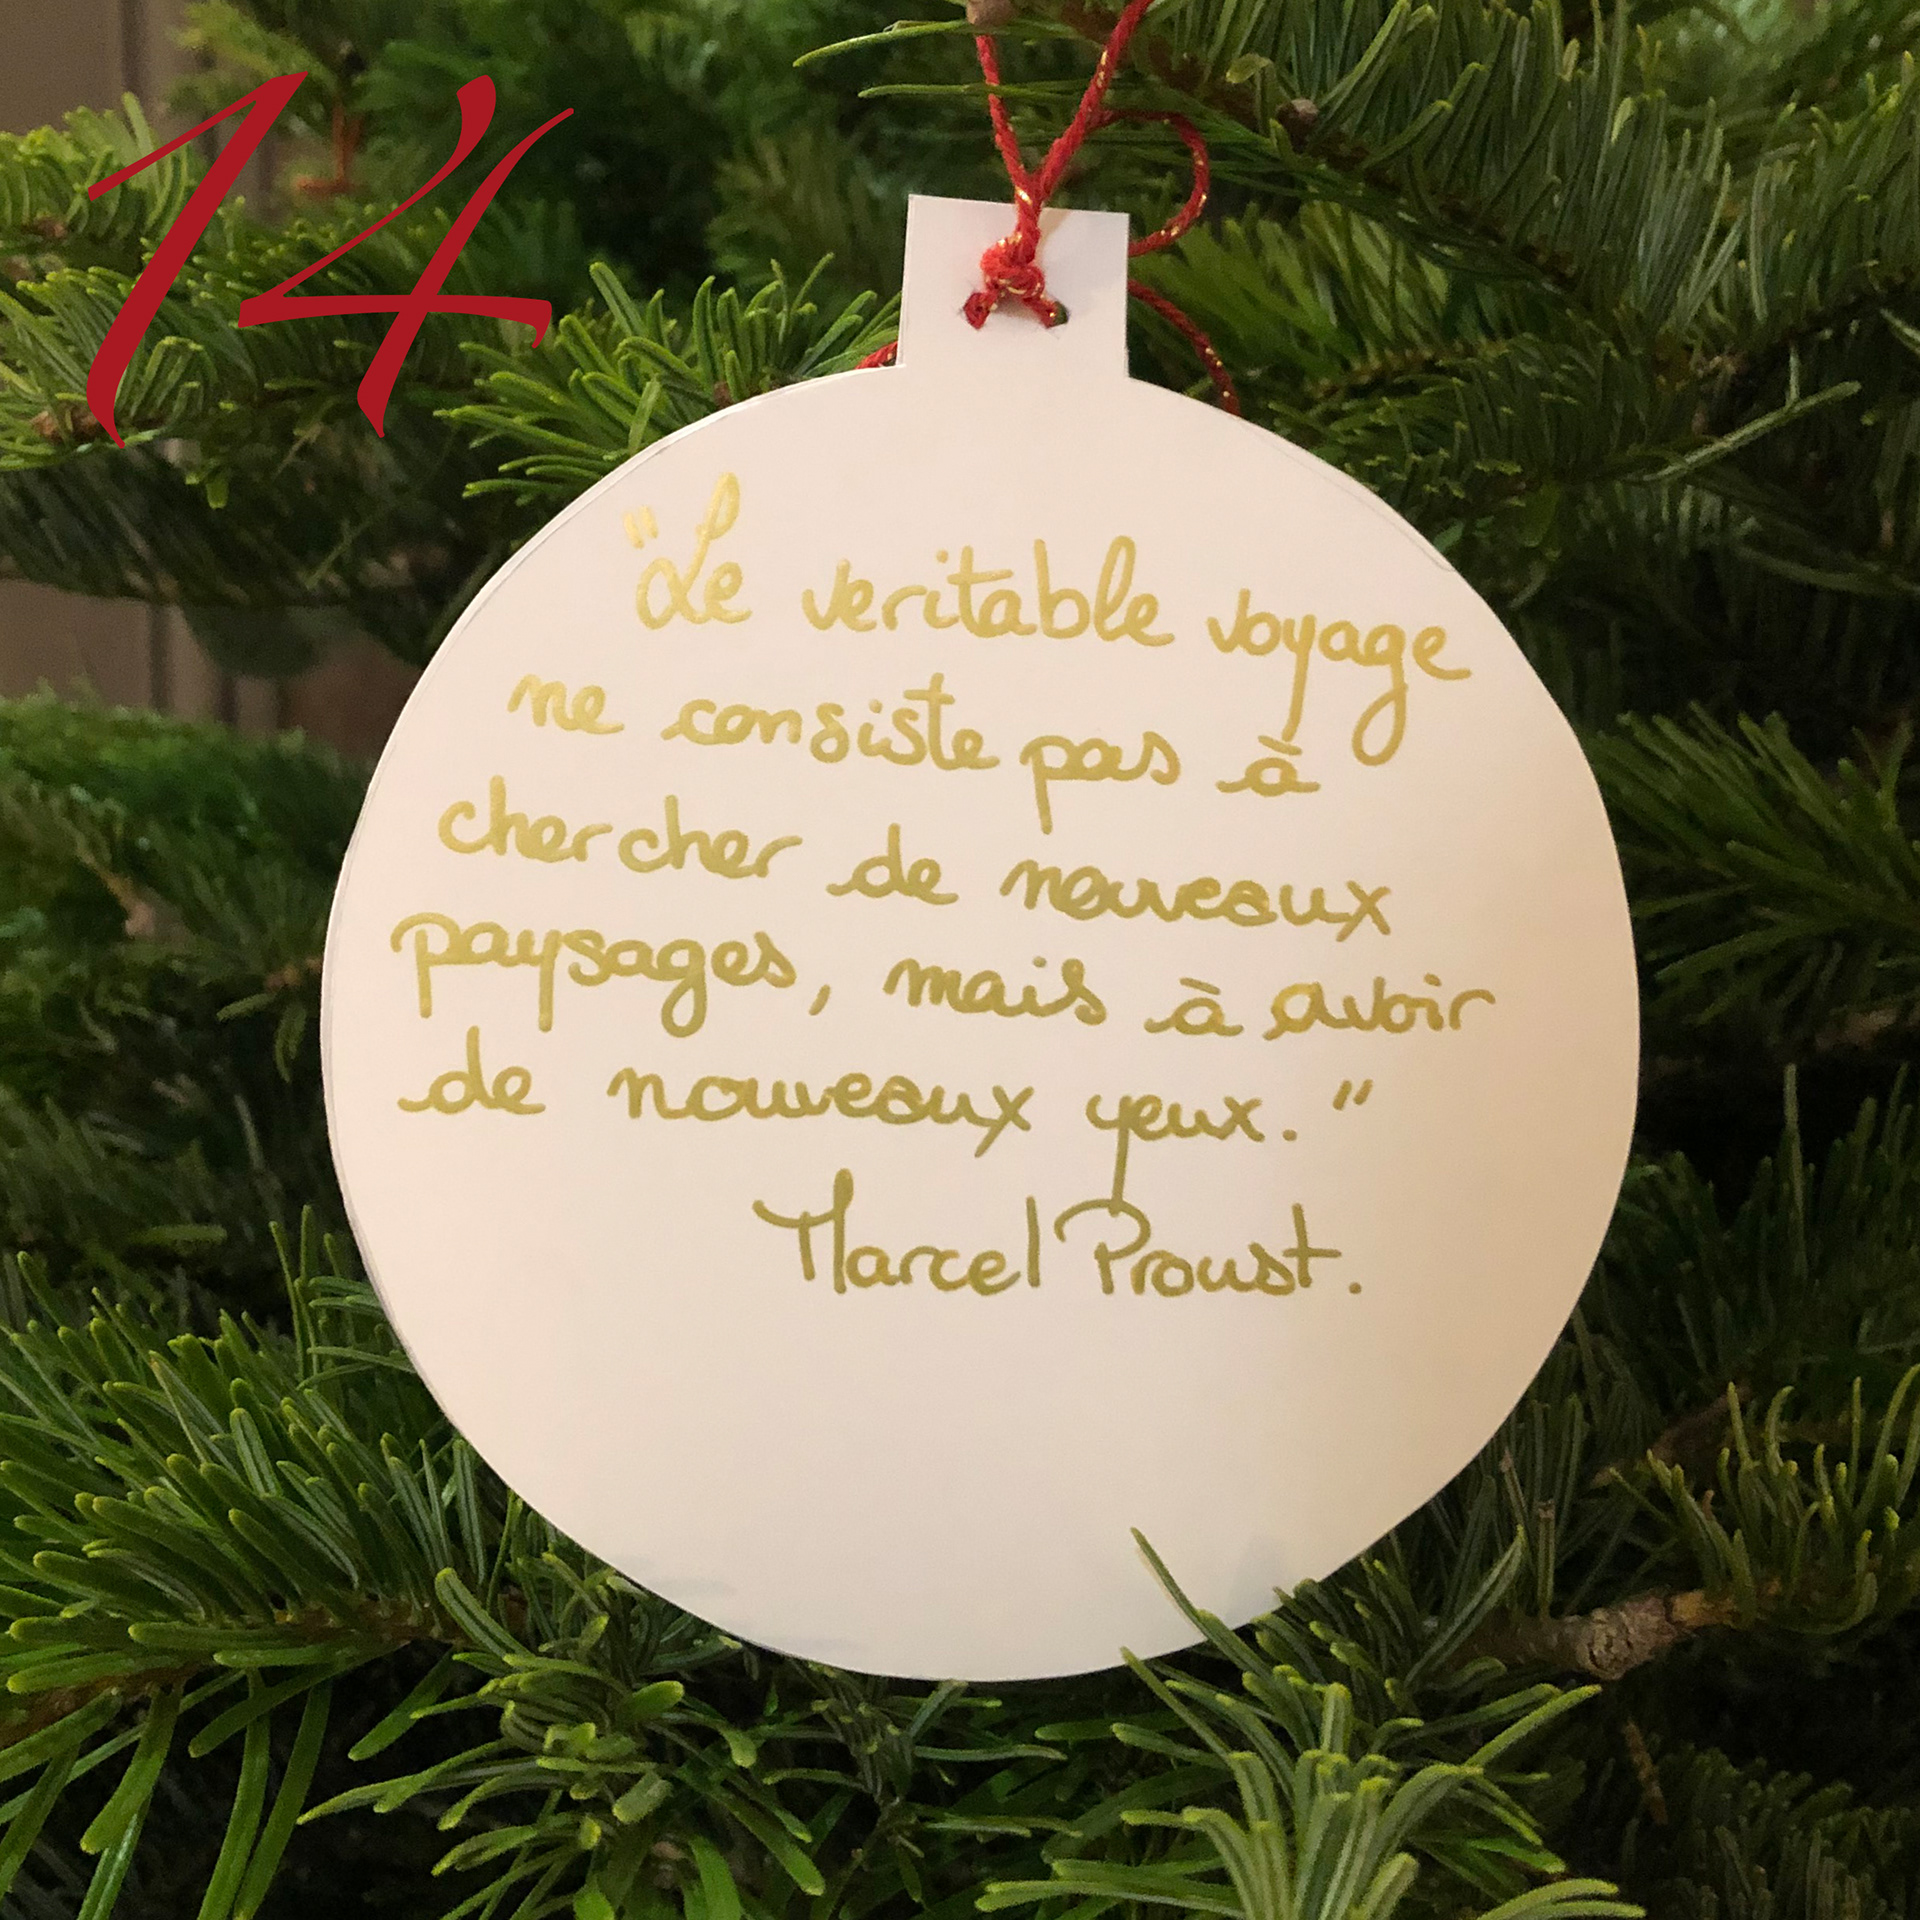 14
"Le veritable voyage
ne consiste pas à
chercher de nouveaux
paysages, mais à avoir
de nouveaux yeux."
Marcel Proust.